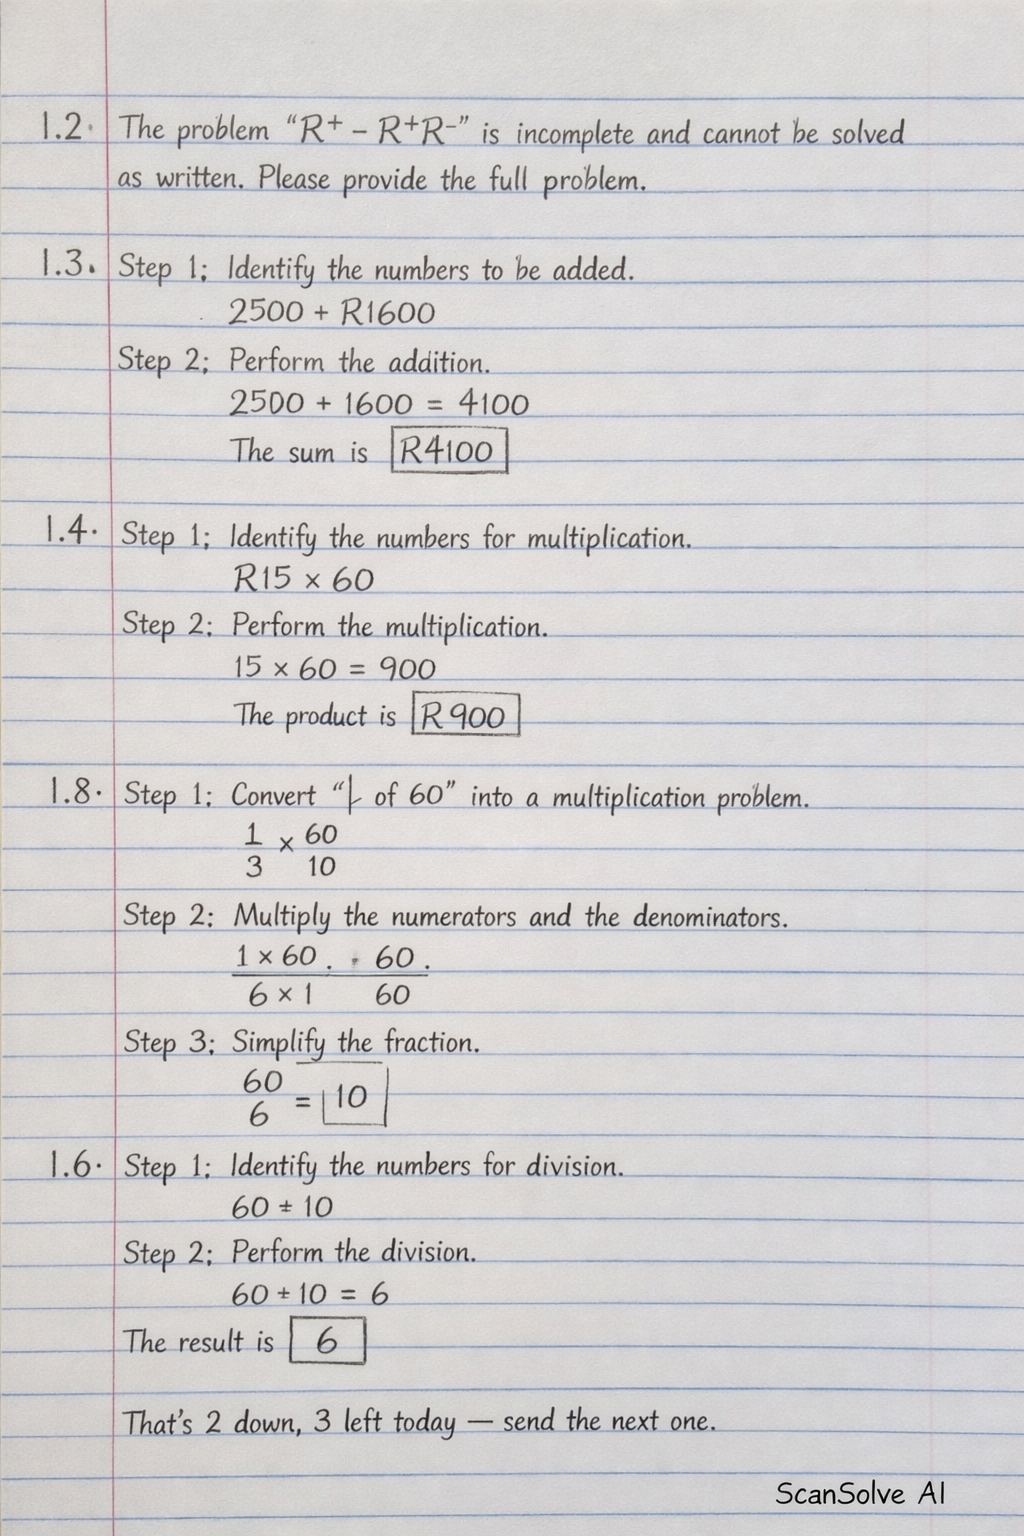 1.2. The problem “R⁺ – R⁺R⁻” is incomplete and cannot be solved
as written. Please provide the full problem.
1.3. Step 1; Identify the numbers to be added.
2500 + R1600
Step 2; Perform the addition.
2500 + 1600 = 4100
The sum is R4100
1.4. Step 1; Identify the numbers for multiplication.
R15 × 60
Step 2; Perform the multiplication.
15 × 60 = 900
The product is R900
1.8. Step 1; Convert “ of 60” into a multiplication problem.
1 × 60
3 10
Step 2: Multiply the numerators and the denominators.
1 × 60 . · 60 .
6 × 1 60
Step 3; Simplify the fraction.
60
6 = 10
1.6. Step 1; Identify the numbers for division.
60 ÷ 10
Step 2; Perform the division.
60 ÷ 10 = 6
The result is 6
That's 2 down, 3 left today — send the next one.
ScanSolve AI